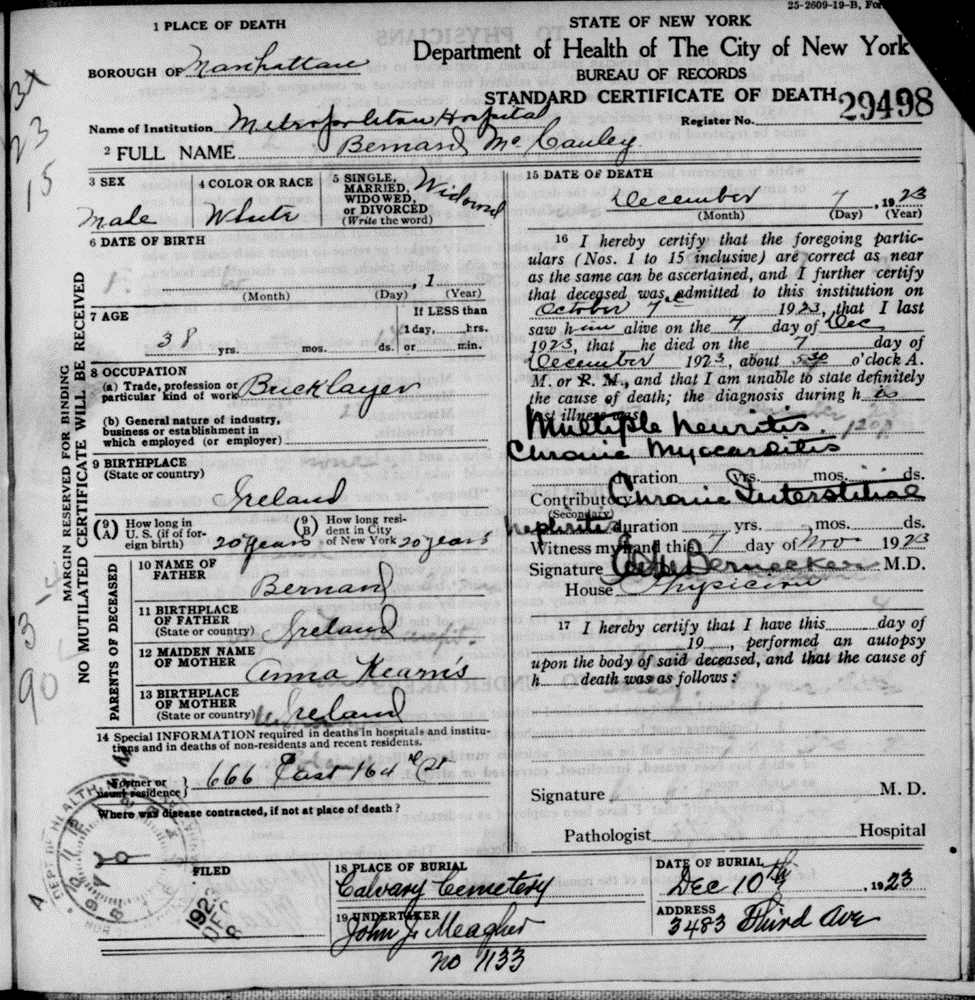 25-2609-19-B,
1 PLACE OF DEATH
STATE OF NEW YORK
Department of Health of The City of New York
BUREAU OF RECORDS
STANDARD CERTIFICATE OF DEATH
BOROUGH OF Manhattan
Name of Institution Metropolitan Hospital
Register No. 29498
2 FULL NAME Bernard Mc Cauley
3 SEX
Male
4 COLOR OR RACE
White
5 SINGLE,
MARRIED,
WIDOWED,
or DIVORCED
(Write the word)
Widowed
6 DATE OF BIRTH
, 1
(Month) (Day) (Year)
7 AGE
38 yrs. mos. ds.
If LESS than
1 day, hrs.
or min.
8 OCCUPATION
(a) Trade, profession or
particular kind of work Bricklayer
(b) General nature of industry,
business or establishment in
which employed (or employer)
9 BIRTHPLACE
(State or country)
Ireland
(9 A) How long in
U. S. (if of for-
eign birth) 20 years
(9 B) How long resi-
dent in City
of New York 20 years
PARENTS OF DECEASED
10 NAME OF
FATHER
Bernard
11 BIRTHPLACE
OF FATHER
(State or country) Ireland
12 MAIDEN NAME
OF MOTHER
Anna Kearn's
13 BIRTHPLACE
OF MOTHER
(State or country) Ireland
14 Special INFORMATION required in deaths in hospitals and institu-
tions and in deaths of non-residents and recent residents.
Former or
usual residence } 666 East 164
Where was disease contracted, if not at place of death ?
MARGIN RESERVED FOR BINDING
NO MUTILATED CERTIFICATE WILL BE RECEIVED
23
15
90
15 DATE OF DEATH
December 7, 1923
(Month) (Day) (Year)
16 I hereby certify that the foregoing partic-
ulars (Nos. 1 to 15 inclusive) are correct as near
as the same can be ascertained, and I further certify
that deceased was admitted to this institution on
October 7 1923, that I last
saw him alive on the 7 day of Dec
1923, that he died on the 7 day of
December 1923, about 5 30 o'clock A.
M. or P. M., and that I am unable to state definitely
the cause of death; the diagnosis during his
last illness was:
Multiple Neuritis.
Chronic Myocarditis
duration yrs. mos. ds.
Contributory Chronic Interstitial
(Secondary)
nephritis duration yrs. mos. ds.
Witness my hand this 7 day of Nov 1923
Signature Bernecker M.D.
House Physician
17 I hereby certify that I have this day of
19 , performed an autopsy
upon the body of said deceased, and that the cause of
h death was as follows :
Signature M. D.
Pathologist Hospital
FILED
1923
DEC 8
18 PLACE OF BURIAL
Calvary Cemetery
DATE OF BURIAL
Dec 10th, 1923
19 UNDERTAKER
John J. Meagher
ADDRESS
3483 Third Ave
No 1133